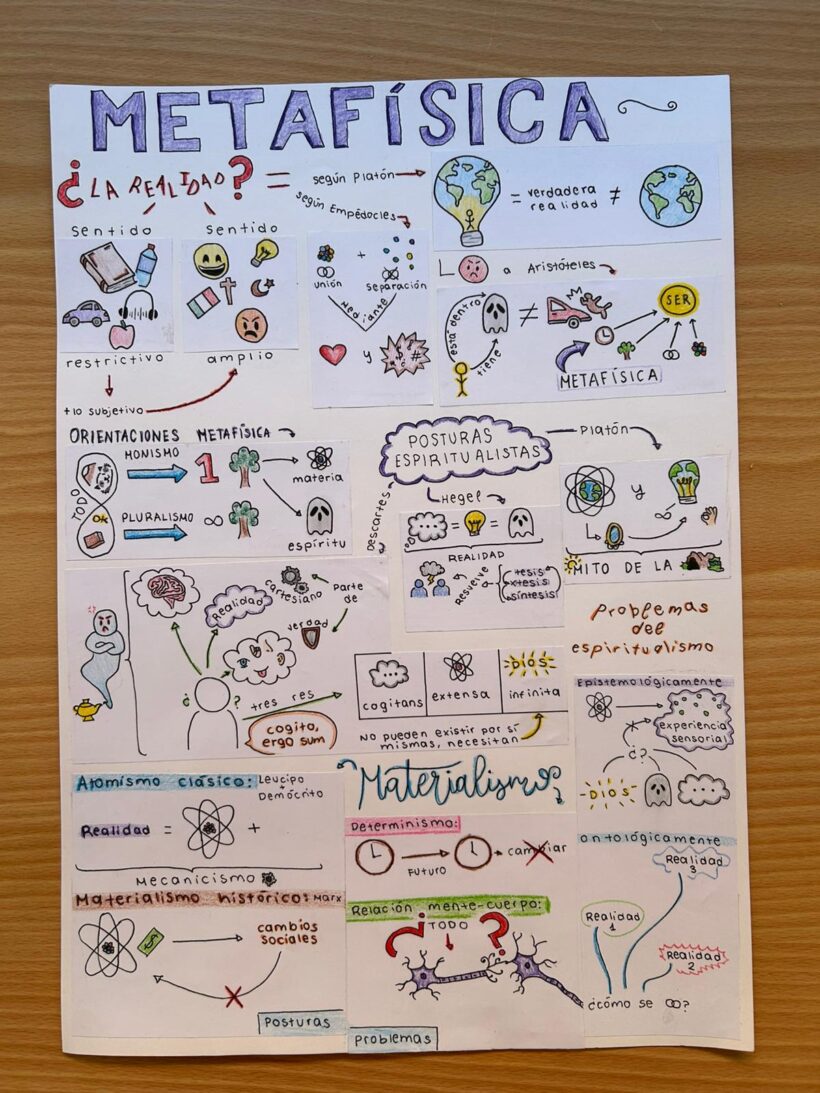 METAFÍSICA
¿LA REALIDAD? =
según Platón
según Empédocles
= verdadera
realidad ≠
sentido
restrictivo
sentido
amplio
+ lo subjetivo
+
unión
separación
Mediante
y
a Aristóteles
está dentro
tiene
≠
SER
METAFÍSICA
ORIENTACIONES METAFÍSICA
TODO
OK
MONISMO
1
materia
PLURALISMO
∞
espíritu
POSTURAS
ESPIRITUALISTAS
Platón
y
∞
MITO DE LA
Hegel
= =
REALIDAD
Resuelve
tesis
xtesis
síntesis
Descartes
Realidad
cartesiano
Parte
de
verdad
¿ ?
cogito,
ergo sum
tres res
cogitans
extensa
DIOS
infinita
No pueden existir por sí
mismas, necesitan
Problemas
del
espiritualismo
Epistemológicamente
experiencia
sensorial
¿?
DIOS
ontológicamente
Realidad
3
Realidad
1
Realidad
2
¿cómo se ?
Atomismo clásico: Leucipo
+
Demócrito
Realidad = +
Mecanicismo
Materialismo histórico: Marx
$
cambios
sociales
Posturas
Materialismo
Determinismo:
FUTURO
cambiar
Relación mente-cuerpo:
¿TODO?
Problemas